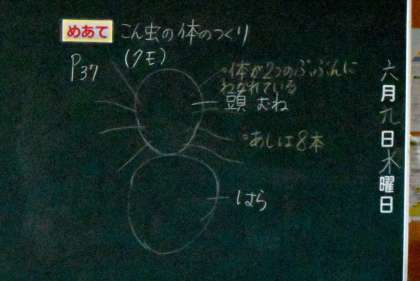 めあて こん虫の体のつくり
P37 (クモ)
・体が2つのぶぶんに
わかれている
頭 むね
・あしは8本
はら
六月九日水曜日